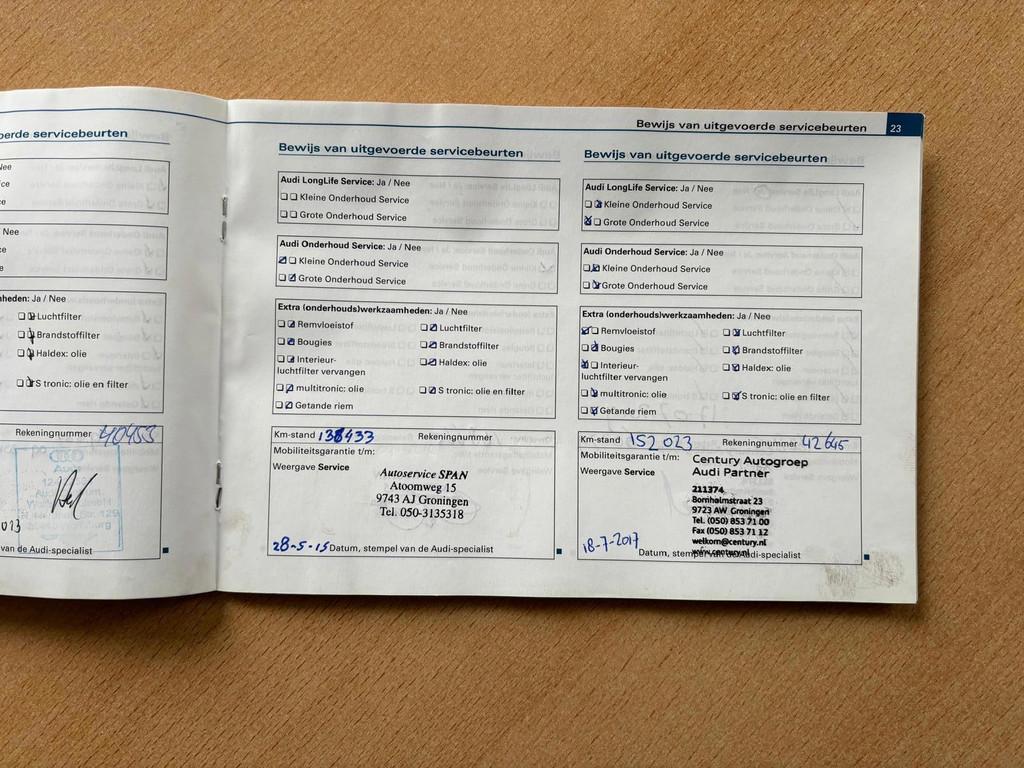 Bewijs van uitgevoerde servicebeurten 23
servicebeurten
Nee
Nee
Ja / Nee
Luchtfilter
Brandstoffilter
Haldex: olie
S tronic: olie en filter
Rekeningnummer 40453
van de Audi-specialist
Bewijs van uitgevoerde servicebeurten
Audi LongLife Service: Ja / Nee
Kleine Onderhoud Service
Grote Onderhoud Service
Audi Onderhoud Service: Ja / Nee
Kleine Onderhoud Service
Grote Onderhoud Service
Extra (onderhouds)werkzaamheden: Ja / Nee
Remvloeistof Luchtfilter
Bougies Brandstoffilter
Interieur- Haldex: olie
luchtfilter vervangen
multitronic: olie S tronic: olie en filter
Getande riem
Km-stand 138433 Rekeningnummer
Mobiliteitsgarantie t/m:
Weergave Service
Autoservice SPAN
Atoomweg 15
9743 AJ Groningen
Tel. 050-3135318
28-5-15 Datum, stempel van de Audi-specialist
Bewijs van uitgevoerde servicebeurten
Audi LongLife Service: Ja / Nee
Kleine Onderhoud Service
Grote Onderhoud Service
Audi Onderhoud Service: Ja / Nee
Kleine Onderhoud Service
Grote Onderhoud Service
Extra (onderhouds)werkzaamheden: Ja / Nee
Remvloeistof Luchtfilter
Bougies Brandstoffilter
Interieur- Haldex: olie
luchtfilter vervangen
multitronic: olie S tronic: olie en filter
Getande riem
Km-stand 152 023 Rekeningnummer 42645
Mobiliteitsgarantie t/m:
Weergave Service
Century Autogroep
Audi Partner
211374
Bornholmstraat 23
9723 AW Groningen
Tel. (050) 853 71 00
Fax (050) 853 71 12
welkom@century.nl
www.century.nl
18-7-2017 Datum, stempel van de Audi-specialist